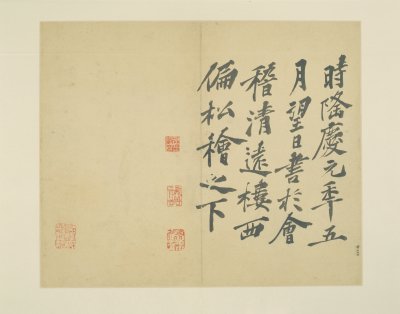 時隆慶元年五
月望日書於會
稽清遠樓西
偏松檜之下